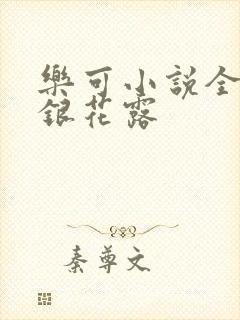 樂可小説全
銀花露
秦尊文